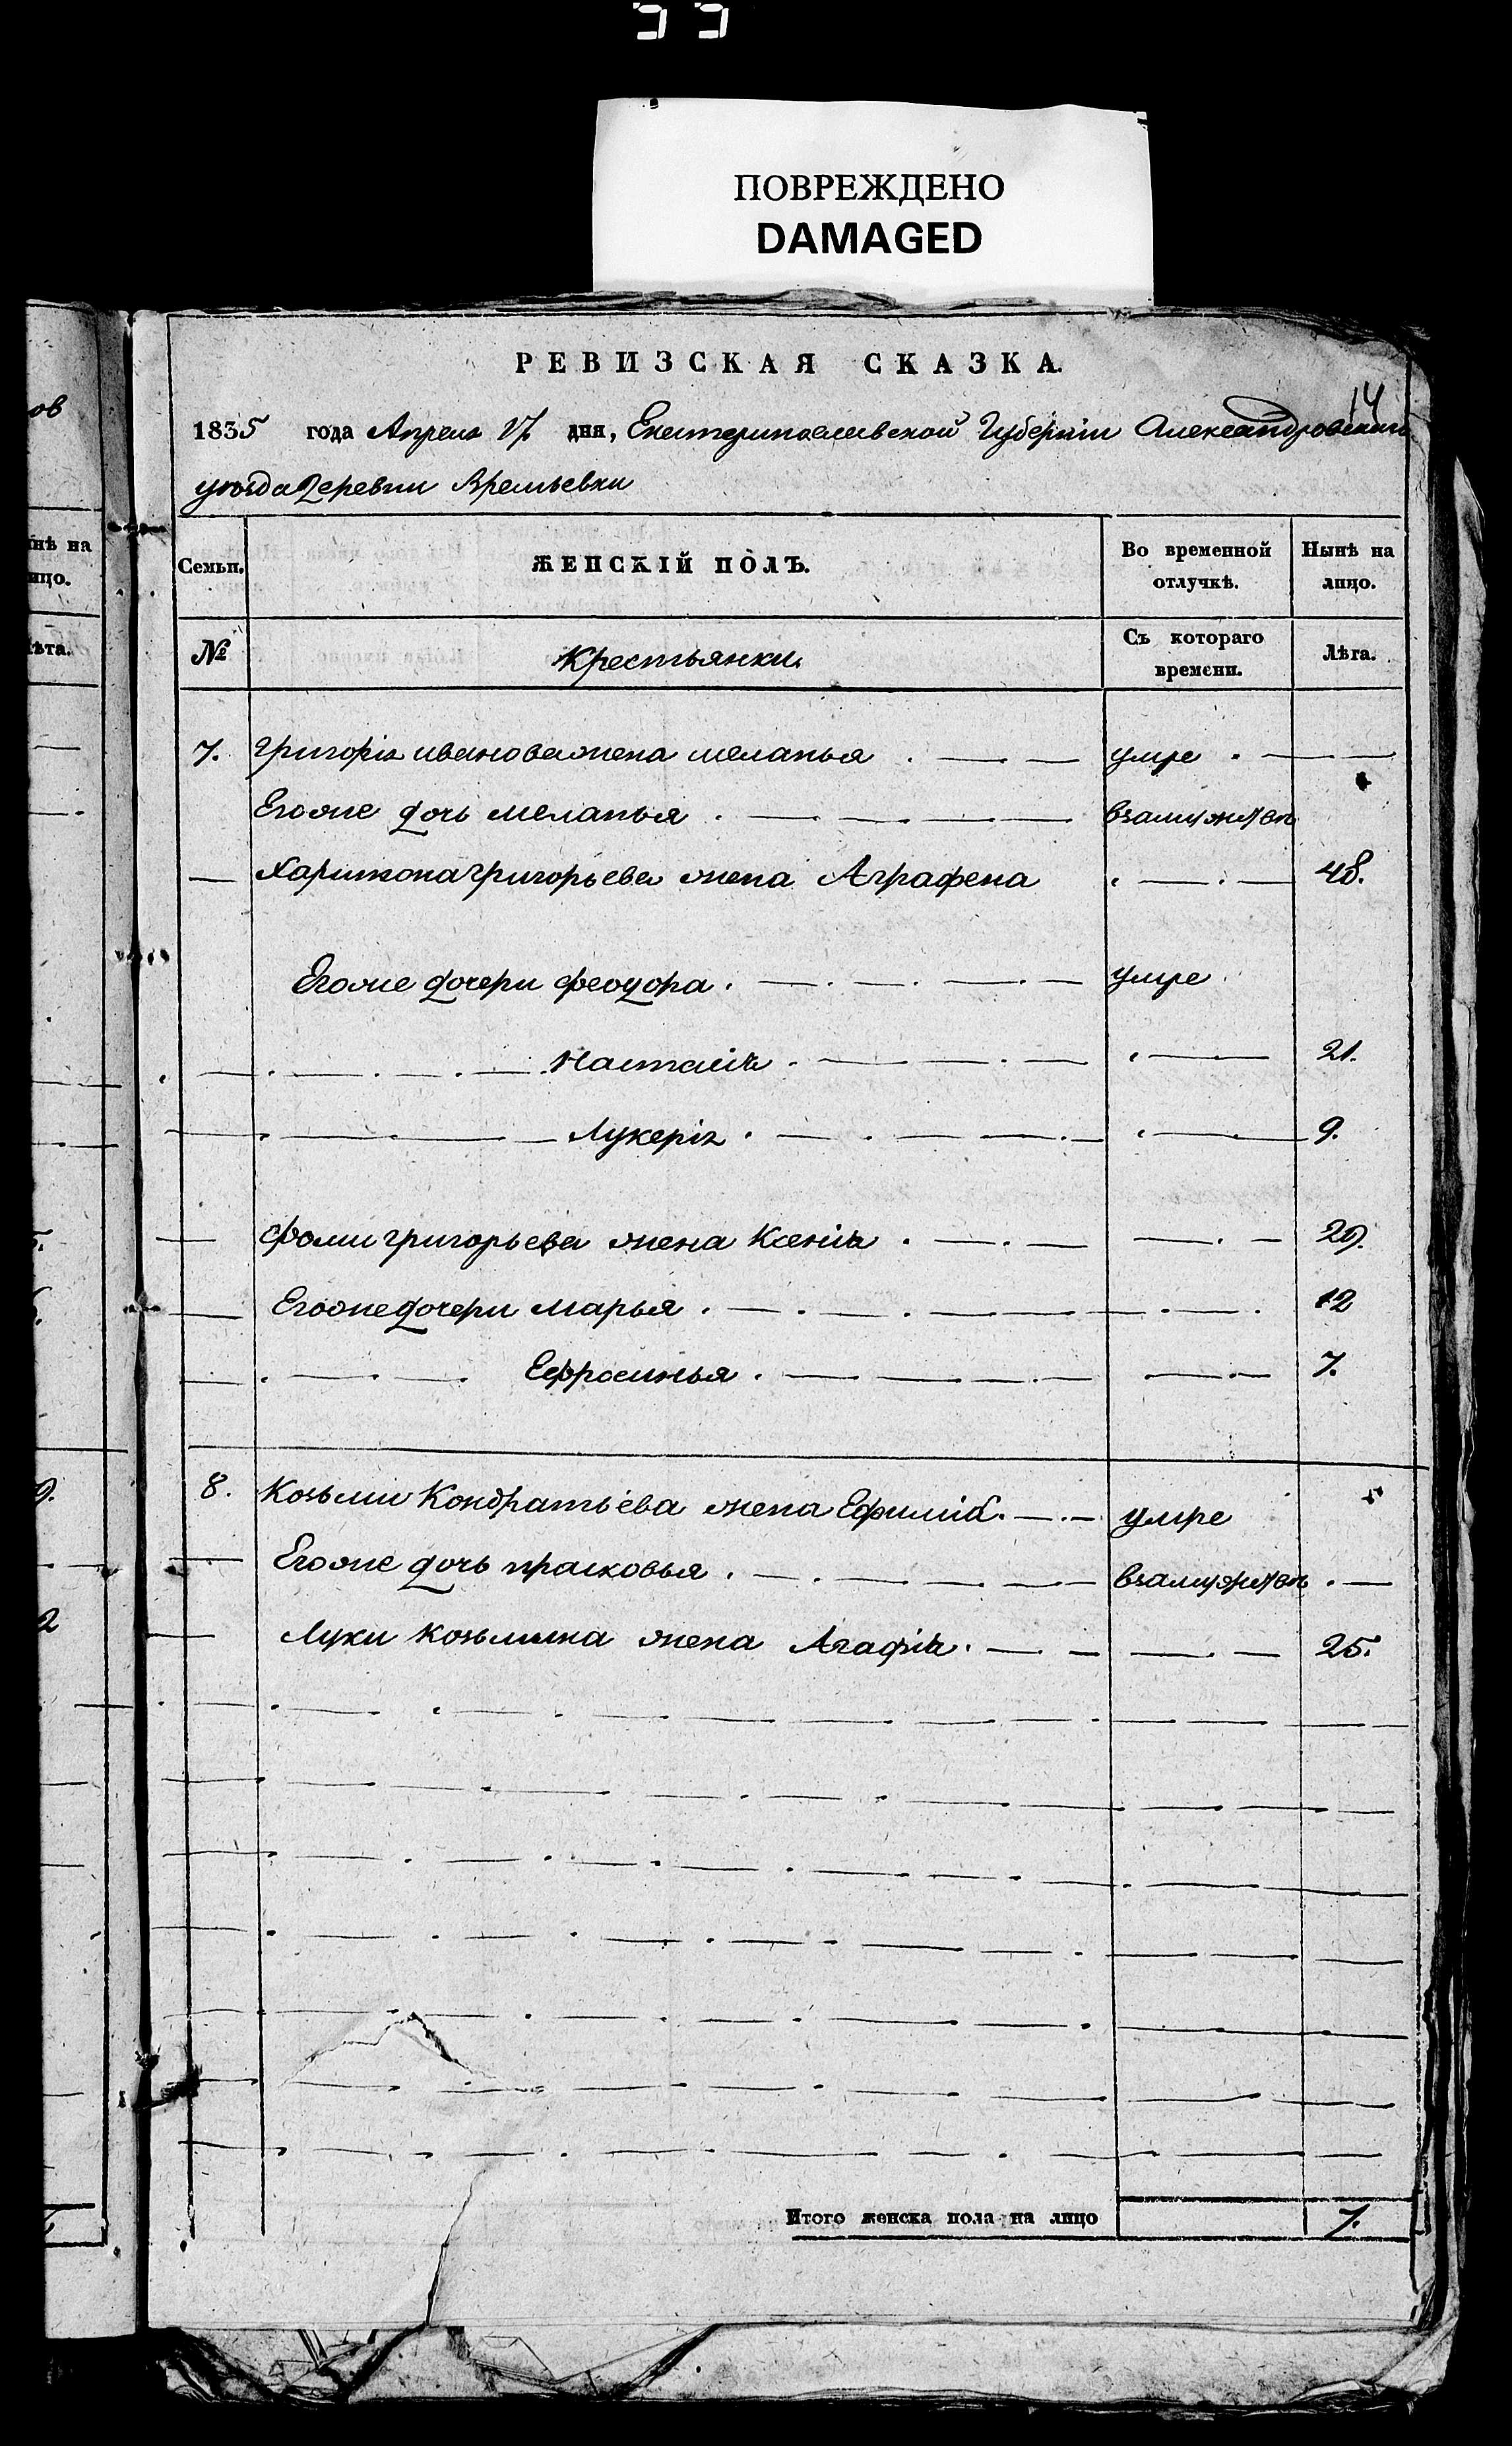 ПОВРЕЖДЕНО
DAMAGED
РЕВИЗСКАЯ СКАЗКА.
14
1835 года Апреля 17 дня, Екатеринославской Губернiи Александровскаго
уезда деревни Времьевки
Семьи. ЖЕНСКIЙ ПОЛЪ. Во временной отлучкѣ. Нынѣ на лицо.
№ Крестьянки. Съ котораго времени. Лѣта.
7. Григорiя иванова жена меланья умре
Егоже дочь меланья взамужтве
Харитона григорьева жена Аграфена 48.
Егоже дочери феодора умре
настасiя 21.
Лукерiя 9.
Фоми григорьева жена Ксенiя 29.
Егоже дочери марья 12
Ефросинья 7.
8. Козьми Кондратьева жена Ефимiя умре
Егоже дочь прасковья взамужтве
Луки козьмина жена Агафiя 25.
Итого женска пола на лицо 7.